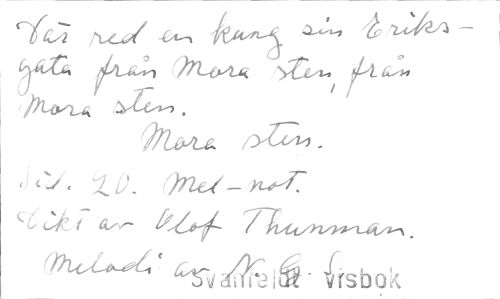 Där red en kung sin Eriks-
gata från Mora sten, från
Mora sten.
Mora sten.
Sid. 20. Mel-not.
Dikt av Olof Thunman.
Melodi av N. G. S.
Svanfeldt visbok